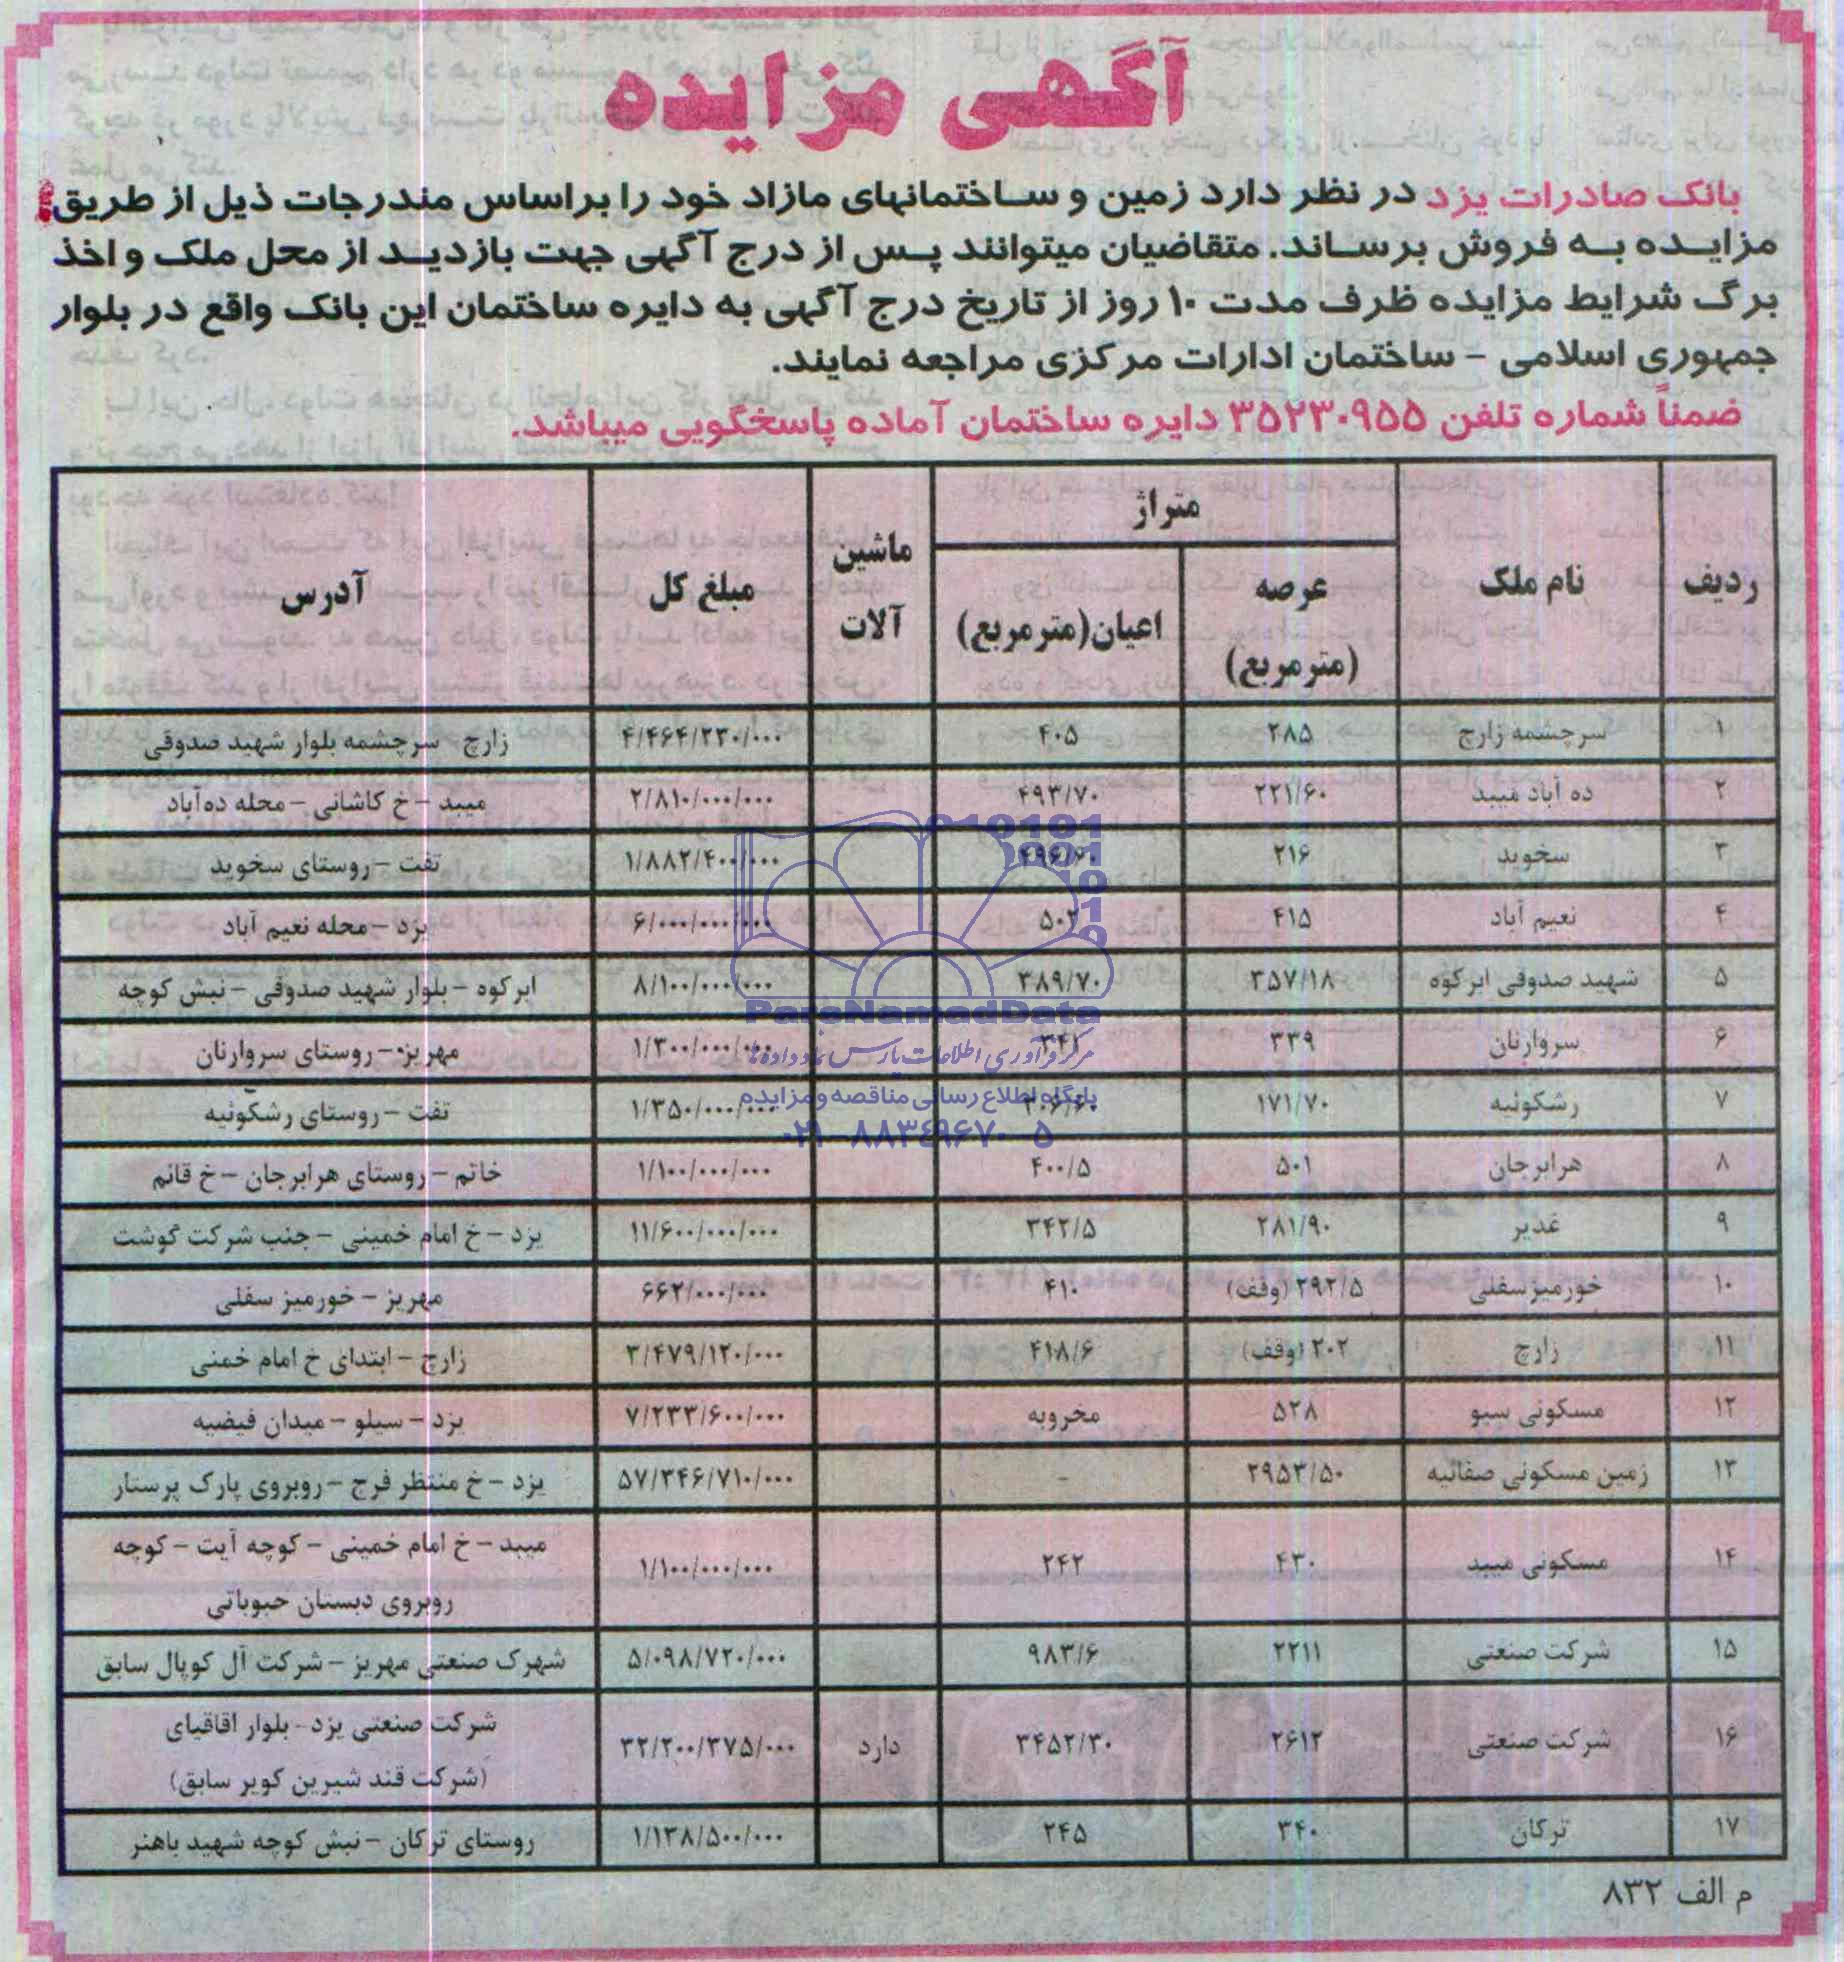 آگهی مزایده
بانک صادرات یزد در نظر دارد زمین و ساختمانهای مازاد خود را براساس مندرجات ذیل از طریق
مزایده به فروش برساند. متقاضیان میتوانند پس از درج آگهی جهت بازدید از محل ملک و اخذ
برگ شرایط مزایده ظرف مدت ۱۰ روز از تاریخ درج آگهی به دایره ساختمان این بانک واقع در بلوار
جمهوری اسلامی - ساختمان ادارات مرکزی مراجعه نمایند.
ضمناً شماره تلفن ۳۵۲۳۰۹۵۵ دایره ساختمان آماده پاسخگویی میباشد.
ردیف نام ملک متراژ عرصه (مترمربع) اعیان(مترمربع) ماشین آلات مبلغ کل آدرس
۱ سرچشمه زارچ ۲۸۵ ۴۰۵ ۴/۴۶۴/۲۳۰/۰۰۰ زارچ سرچشمه بلوار شهید صدوقی
۲ ده آباد میبد ۲۲۱/۶۰ ۴۹۳/۷۰ ۲/۸۱۰/۰۰۰/۰۰۰ میبد - خ کاشانی - محله ده‌آباد
۳ سخوید ۲۱۶ ۴۹۶/۶۰ ۱/۸۸۲/۴۰۰/۰۰۰ تفت - روستای سخوید
۴ نعیم آباد ۴۱۵ ۵۰۲ ۶/۰۰۰/۰۰۰/۰۰۰ یزد - محله نعیم آباد
۵ شهید صدوقی ابرکوه ۳۵۷/۱۸ ۳۸۹/۷۰ ۸/۱۰۰/۰۰۰/۰۰۰ ابرکوه - بلوار شهید صدوقی - نبش کوچه
۶ سروارنان ۳۳۹ ۳۴۱ ۱/۳۰۰/۰۰۰/۰۰۰ مهریز - روستای سروارنان
۷ رشکوئیه ۱۷۱/۷۰ ۳۰۶/۶۰ ۱/۳۵۰/۰۰۰/۰۰۰ تفت - روستای رشکوئیه
۸ هرابرجان ۵۰۱ ۴۰۰/۵ ۱/۱۰۰/۰۰۰/۰۰۰ خاتم - روستای هرابرجان - خ قائم
۹ غدیر ۲۸۱/۹۰ ۳۴۲/۵ ۱۱/۶۰۰/۰۰۰/۰۰۰ یزد - خ امام خمینی - جنب شرکت گوشت
۱۰ خورمیزسفلی ۲۹۲/۵ (وقف) ۴۱۰ ۶۶۲/۰۰۰/۰۰۰ مهریز - خورمیز سفلی
۱۱ زارچ ۲۰۲ (وقف) ۴۱۸/۶ ۳/۴۷۹/۱۲۰/۰۰۰ زارچ - ابتدای خ امام خمنی
۱۲ مسکونی سیو ۵۲۸ مخروبه ۷/۲۳۳/۶۰۰/۰۰۰ یزد - سیلو - میدان فیضیه
۱۳ زمین مسکونی صفائیه ۲۹۵۳/۵۰ - ۵۷/۳۴۶/۷۱۰/۰۰۰ یزد - خ منتظر فرج - روبروی پارک پرستار
۱۴ مسکونی میبد ۴۳۰ ۲۴۲ ۱/۱۰۰/۰۰۰/۰۰۰ میبد - خ امام خمینی - کوچه آیت - کوچه
روبروی دبستان حبوباتی
۱۵ شرکت صنعتی ۲۲۱۱ ۹۸۳/۶ ۵/۰۹۸/۷۲۰/۰۰۰ شهرک صنعتی مهریز - شرکت آل کوپال سابق
۱۶ شرکت صنعتی ۲۶۱۲ ۳۴۵۲/۳۰ دارد ۳۲/۲۰۰/۳۷۵/۰۰۰ شرکت صنعتی یزد - بلوار اقاقیای
(شرکت قند شیرین کویر سابق)
۱۷ ترکان ۳۴۰ ۲۴۵ ۱/۱۳۸/۵۰۰/۰۰۰ روستای ترکان - نبش کوچه شهید باهنر
م الف ۸۳۲
ParsNamadData
مرکز فرآوری اطلاعات پارس نماد داده ها
پایگاه اطلاع رسانی مناقصه و مزایده
۰۲۱-۸۸۳۴۹۶۷۰-۵